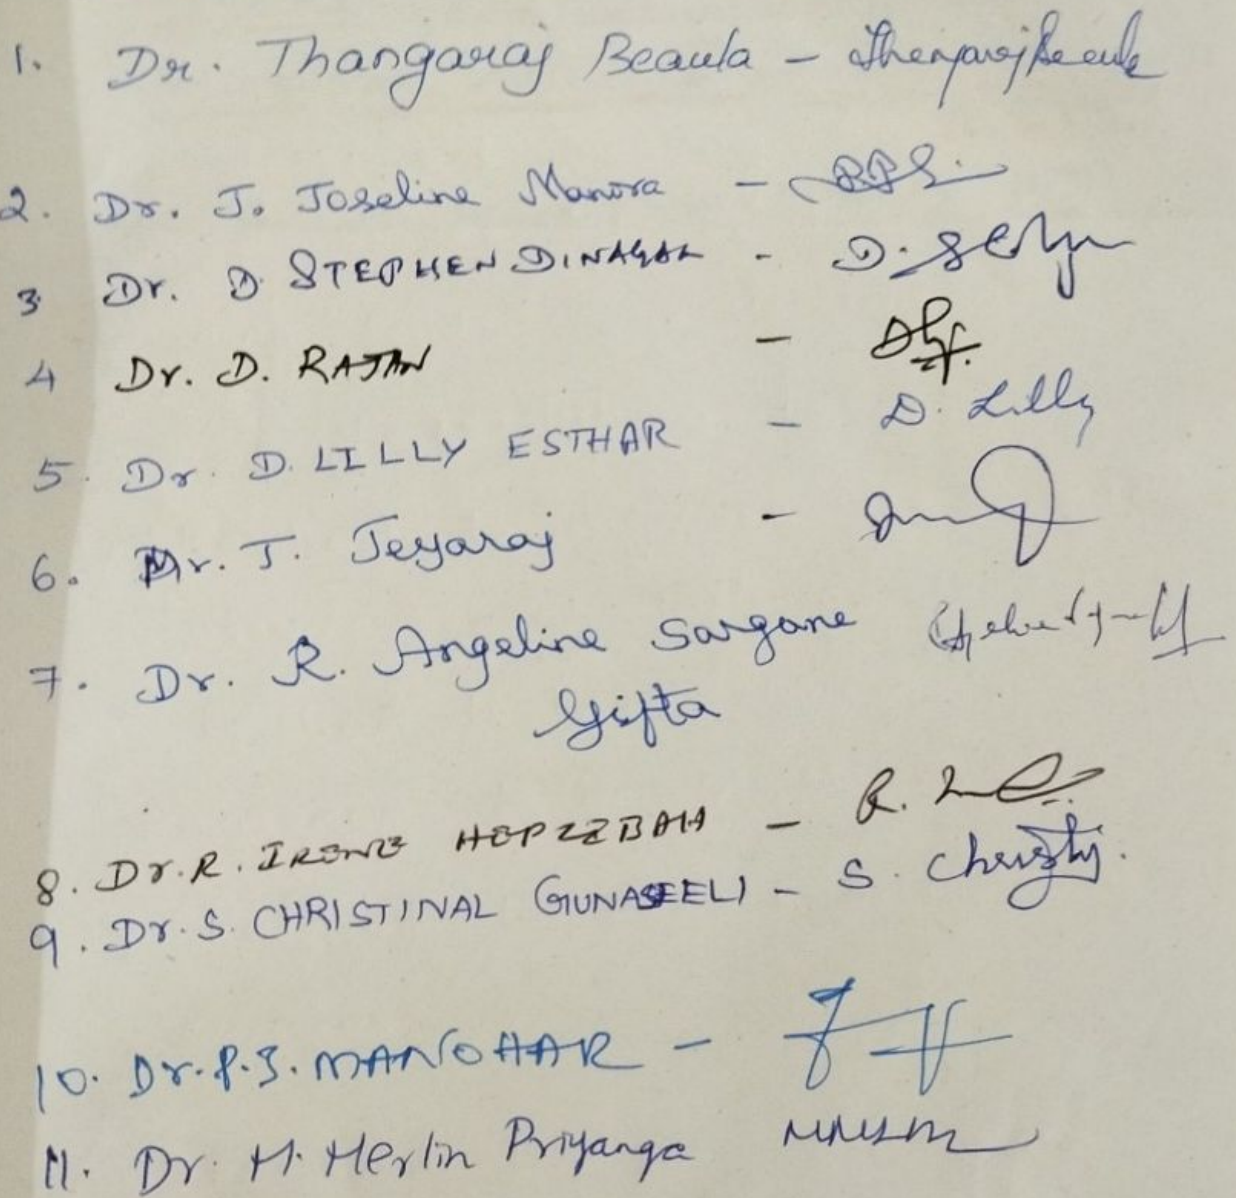 1. Dr. Thangaraj Beaula - Thangaraj Beaula
2. Dr. J. Joseline Manora -
3 Dr. D. STEPHEN DINAGAR - D.
4 Dr. D. RAJAN -
5. Dr. D. LILLY ESTHAR - D. Lilly
6. Mr. T. Jeyaraj -
7. Dr. R. Angeline Sargane
Gifta
8. Dr. R. IRENE HEPZEBAH - R.
9. Dr. S. CHRISTINAL GUNASEELI - S. Christy.
10. Dr. P. J. MANOHAR -
11. Dr. M. Merlin Priyanga